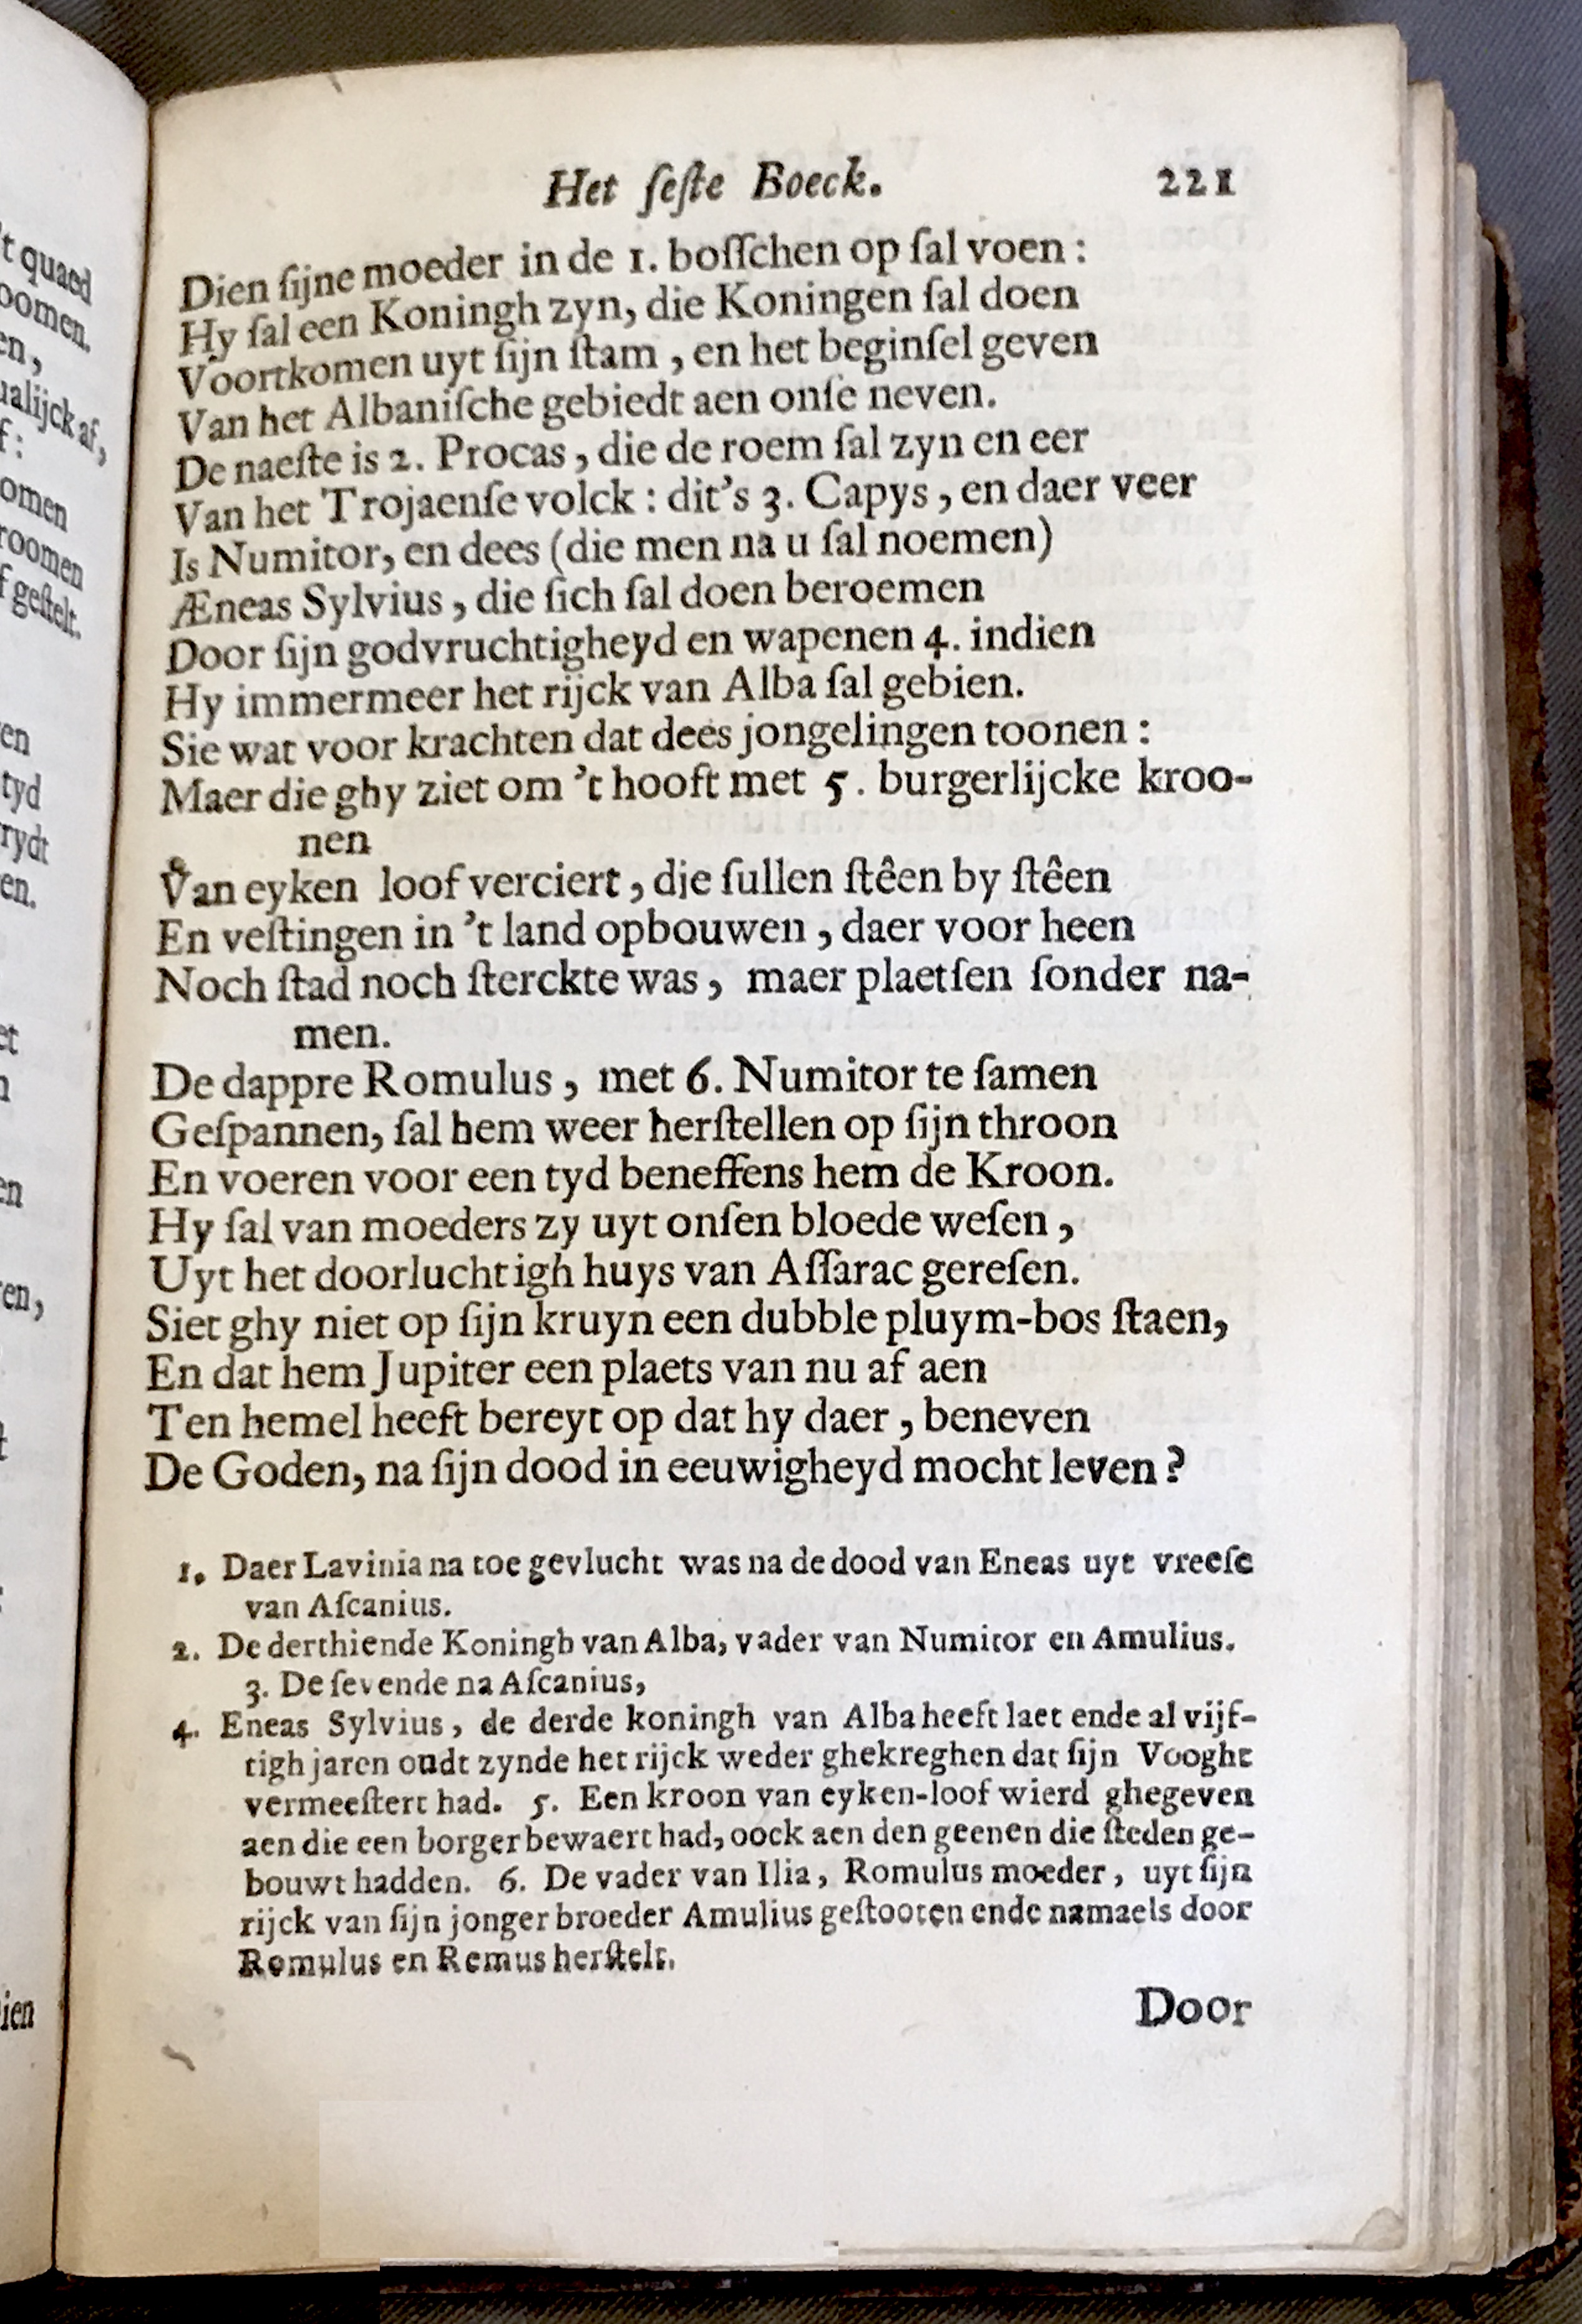 't quaed
oomen.
en,
ualijck af,
f:
omen
roomen
f gestelt.
en
tyd
rydt
en.
et
en
en,
ien
Het ſeſte Boeck. 221
Dien ſijne moeder in de 1. boſſchen op ſal voen :
Hy ſal een Koningh zyn, die Koningen ſal doen
Voortkomen uyt ſijn ſtam , en het beginſel geven
Van het Albaniſche gebiedt aen onſe neven.
De naeſte is 2. Procas , die de roem ſal zyn en eer
Van het Trojaenſe volck : dit's 3. Capys , en daer veer
Is Numitor, en dees (die men na u ſal noemen)
Æneas Sylvius , die ſich ſal doen beroemen
Door ſijn godvruchtigheyd en wapenen 4. indien
Hy immermeer het rijck van Alba ſal gebien.
Sie wat voor krachten dat dees jongelingen toonen :
Maer die ghy ziet om 't hooft met 5. burgerlijcke kroo-
nen
Van eyken loof verciert , die ſullen ſtêen by ſtêen
En veſtingen in 't land opbouwen , daer voor heen
Noch ſtad noch ſterckte was , maer plaetſen ſonder na-
men.
De dappre Romulus , met 6. Numitor te ſamen
Geſpannen, ſal hem weer herſtellen op ſijn throon
En voeren voor een tyd beneffens hem de Kroon.
Hy ſal van moeders zy uyt onſen bloede weſen ,
Uyt het doorluchtigh huys van Aſſarac gereſen.
Siet ghy niet op ſijn kruyn een dubble pluym-bos ſtaen,
En dat hem Jupiter een plaets van nu af aen
Ten hemel heeft bereyt op dat hy daer , beneven
De Goden, na ſijn dood in eeuwigheyd mocht leven ?
1. Daer Lavinia na toe gevlucht was na de dood van Eneas uyt vreeſe
van Aſcanius.
2. De derthiende Koningh van Alba, vader van Numitor en Amulius.
3. De ſevende na Aſcanius,
4. Eneas Sylvius , de derde koningh van Alba heeft laet ende al vijf-
tigh jaren oudt zynde het rijck weder ghekreghen dat ſijn Vooght
vermeeſtert had. 5. Een kroon van eyken-loof wierd ghegeven
aen die een borger bewaert had, oock aen den geenen die ſteden ge-
bouwt hadden. 6. De vader van Ilia , Romulus moeder , uyt ſijn
rijck van ſijn jonger broeder Amulius geſtooten ende namaels door
Romulus en Remus herſtelt.
Door